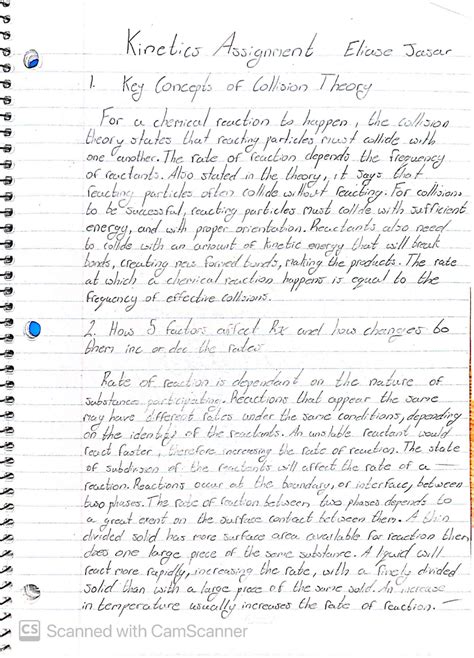 Kinetics Assignment Eliase Jasar
1. Key Concepts of Collision Theory
For a chemical reaction to happen, the collision
theory states that reacting particles must collide with
one another. The rate of reaction depends the frequency
of reactants. Also stated in the theory, it says that
reacting particles often collide without reacting. For collisions
to be successful, reacting particles must collide with sufficient
energy, and with proper orientation. Reactants also need
to collide with an amount of kinetic energy that will break
bonds, creating new formed bonds, making the products. The rate
at which a chemical reaction happens is equal to the
frequency of effective collisions.
2. How 5 factors affect Rx and how changes to
them inc or dec the rates
Rate of reaction is dependant on the nature of
substances participating. Reactions that appear the same
may have different rates under the same conditions, depending
on the identity of the reactants. An unstable reactant would
react faster, therefore increasing the rate of reaction. The state
of subdivision of the reactants will affect the rate of a
reaction. Reactions occur at the boundary, or interface, between
two phases. The rate of reaction between two phases depends to
a great extent on the surface contact between them. A thin
divided solid has more surface area available for reaction then
does one large piece of the same substance. A liquid will
react more rapidly, increasing the rate, with a finely divided
solid than with a large piece of the same solid. An increase
in temperature usually increases the rate of reaction.
CS Scanned with CamScanner